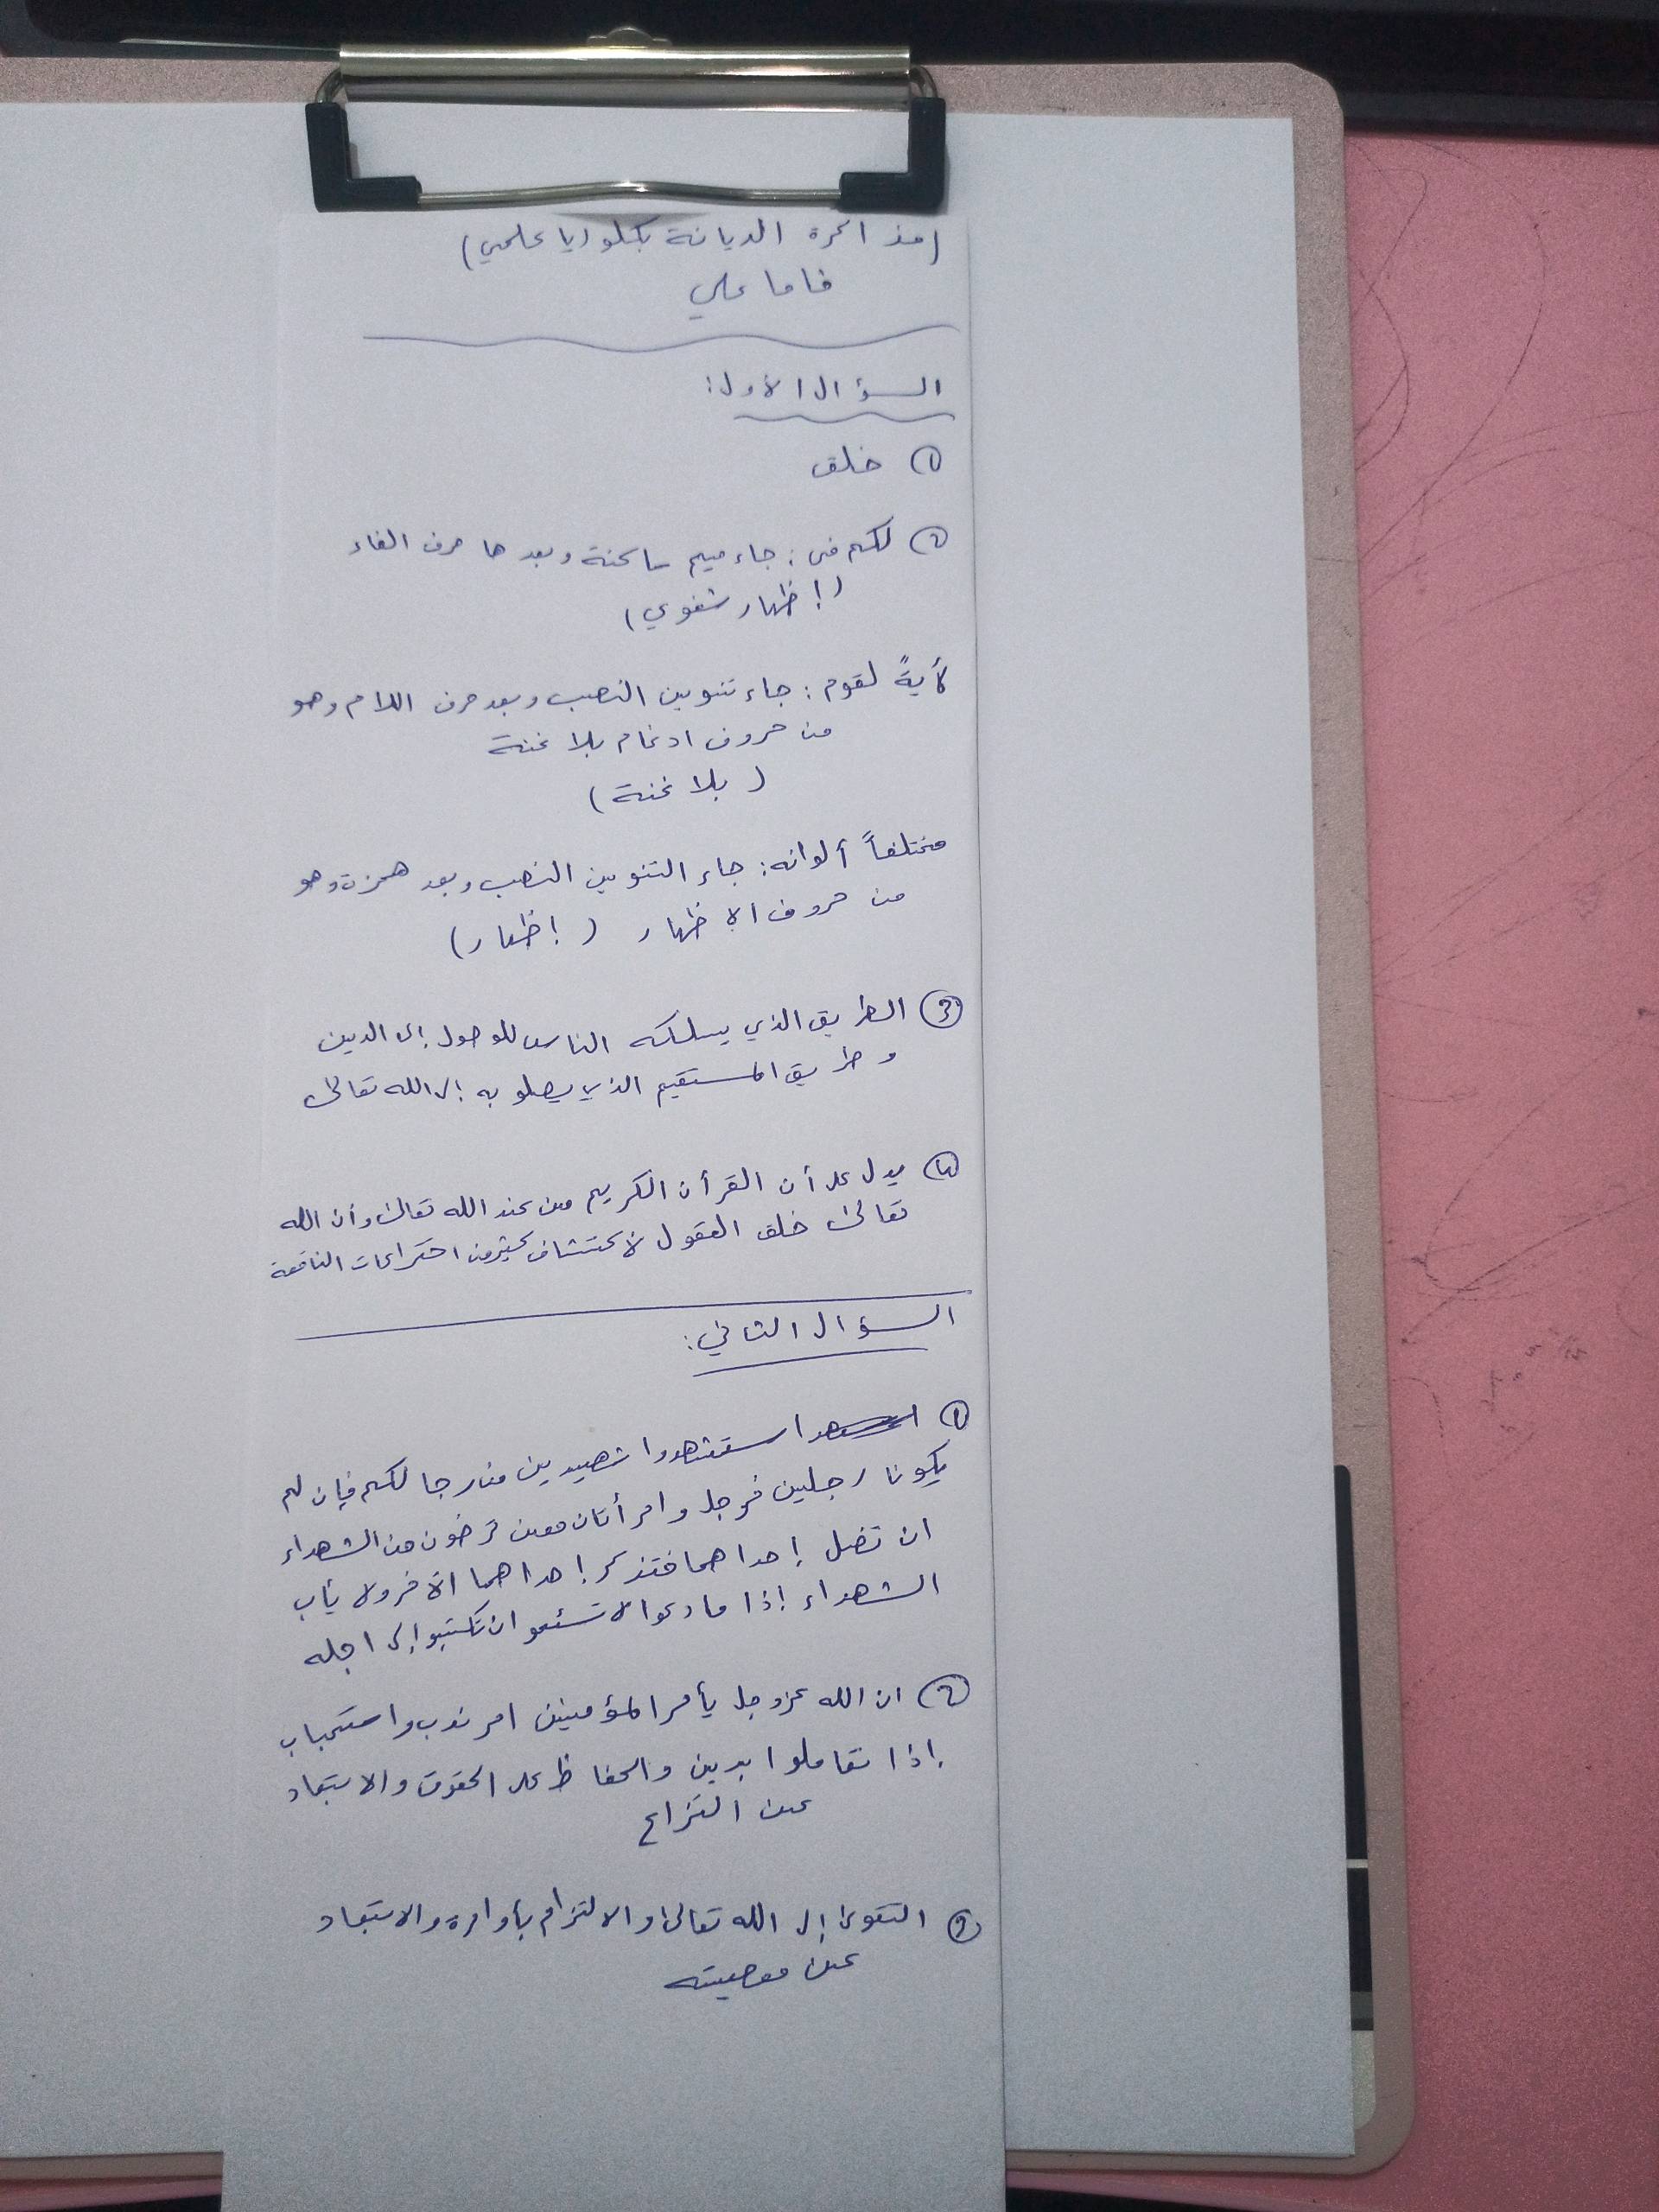 (مذاكرة الديانة بكلوريا علمي)
فاما علي
السؤال الأول:
١) خلق
٢) لكم في: جاء ميم ساكنة وبعدها حرف الفاء
(إظهار شفوي)
لأيةً لقوم: جاء تنوين النصب وبعد حرف اللام وهو
من حروف ادغام بلا غنة
(بلا غنة)
مختلفاً ألوانه: جاء التنوين النصب وبعد همزة وهو
من حروف الإظهار (إظهار)
٣) الطريق الذي يسلكه الناس للوصول إلى الدين
وطريق المستقيم الذي يصلو به إلى الله تعالى
٤) يدل على أن القرأن الكريم من عند الله تعالى وأن الله
تعالى خلق العقول لأكتشاف كثير من اختراعات النافعة
السؤال الثاني:
١) استشهدوا شهيدين من رجالكم فإن لم
يكونا رجلين فرجل وامرأتان ممن ترضون من الشهداء
ان تضل إحداهما فتذكر إحداهما الأخر ولا يأب
الشهداء إذا ما دعوا لا تسئمو ان تكتبوا إلى اجله
٢) ان الله عزوجل يأمر المؤمنين امر ندب واستحباب
إذا تعاملوا بدين والحفاظ على الحقوق والابتعاد
عن النزاع
٣) التقوى إلى الله تعالى والالتزام بأوامرة والابتعاد
عن معصيته